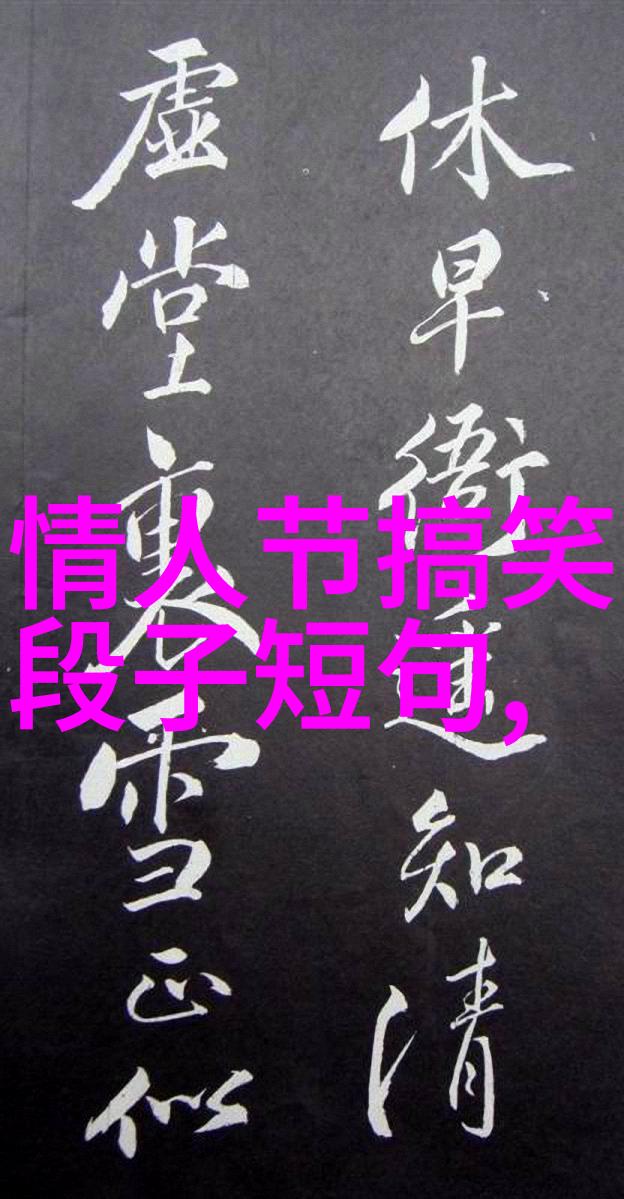 休早衙遙知清
虚堂裏雪正似
情人节搞笑
段子短句,